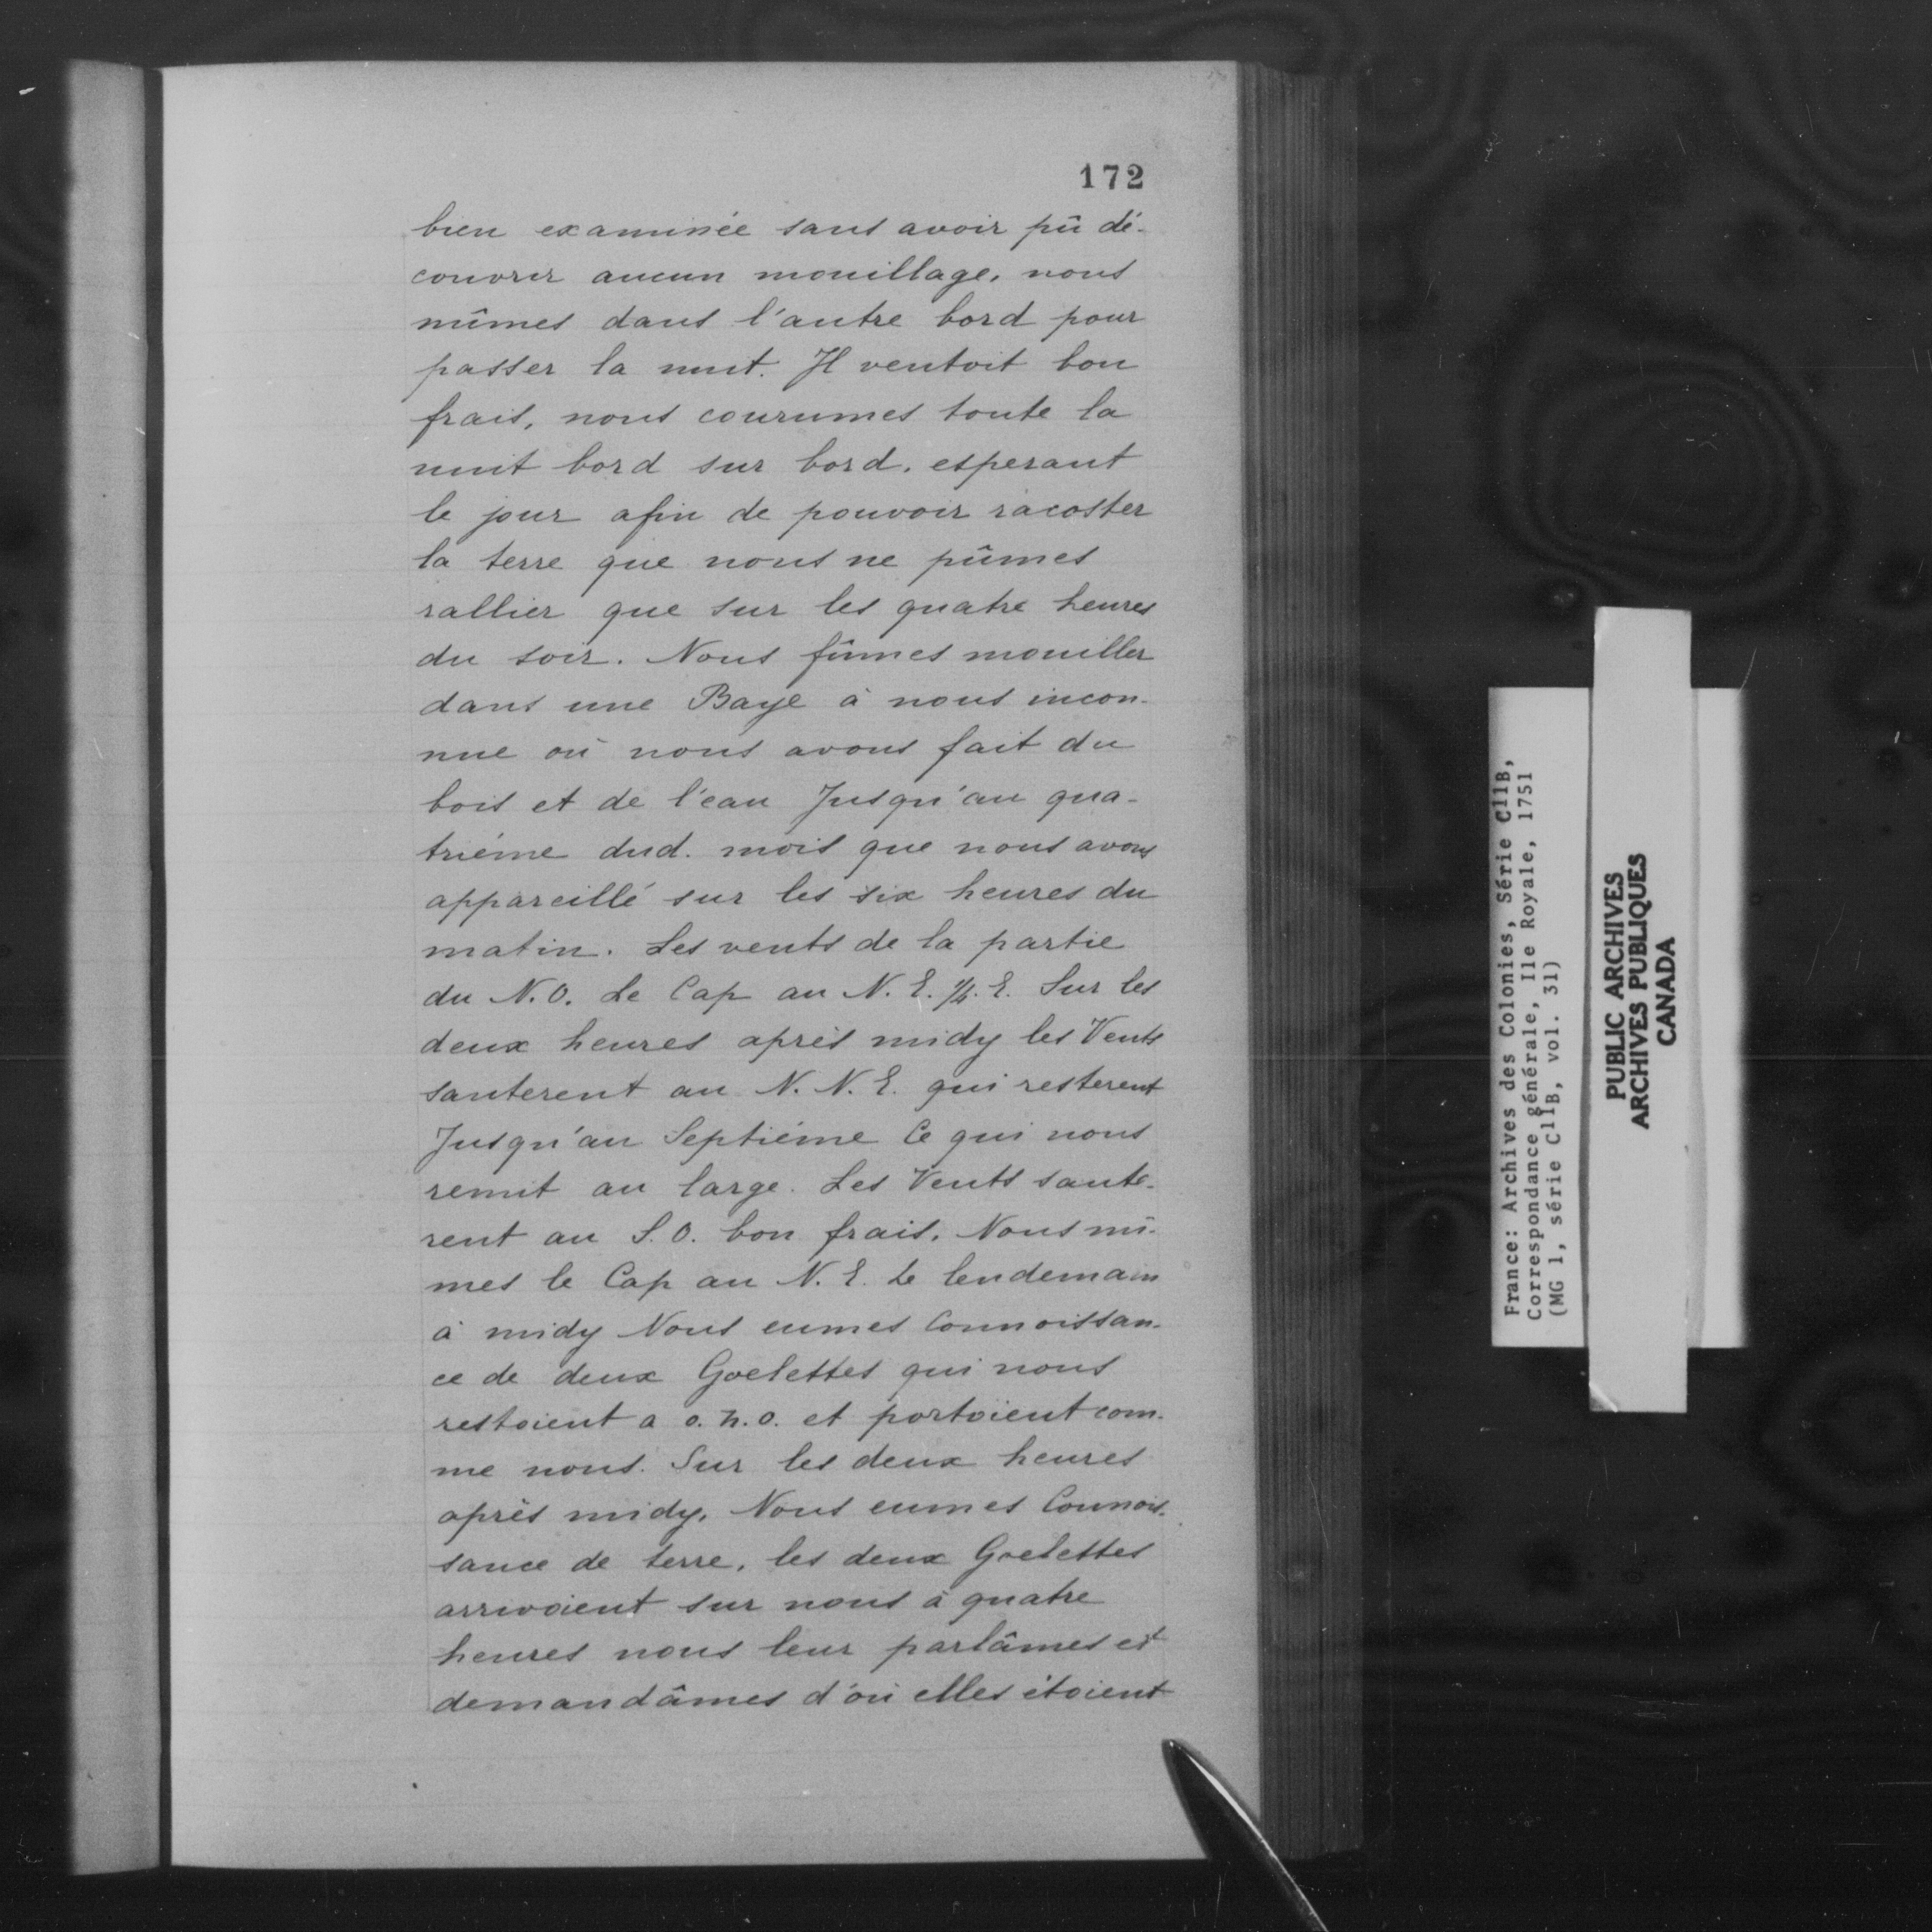 172
bien examinée sans avoir pû dé-
couvrir aucun mouillage, nous
mîmes dans l'autre bord pour
passer la nuit. Il ventoit bon
frais, nous courumes toute la
nuit bord sur bord, esperant
le jour afin de pouvoir racoster
la terre que nous ne pûmes
rallier que sur les quatre heures
du soir. Nous fûmes mouiller
dans une Baye à nous incon-
nue où nous avons fait du
bois et de l'eau Jusqu'au qua-
triéme dud. mois que nous avons
appareillé sur les six heures du
matin. Les vents de la partie
du N.O. Le Cap au N.E. 1/4. E. Sur les
deux heures après midy les Vents
sauterent au N.N.E. qui resterent
Jusqu'au Septiéme Ce qui nous
remit au large. Les Vents saute-
rent au S.O. bon frais. Nous mî-
mes le Cap au N.E. Le lendemain
à midy Nous eumes Connoissan-
ce de deux Goelettes qui nous
restoient a o.n.o. et portoient com-
me nous. Sur les deux heures
après midy, Nous eumes Connois-
sance de terre, les deux Goelettes
arrivoient sur nous à quatre
heures nous leur parlâmes et
demandâmes d'où elles étoient
France: Archives des Colonies, Série C11B,
Correspondance générale, Ile Royale, 1751
(MG 1, série C11B, vol. 31)
PUBLIC ARCHIVES
ARCHIVES PUBLIQUES
CANADA